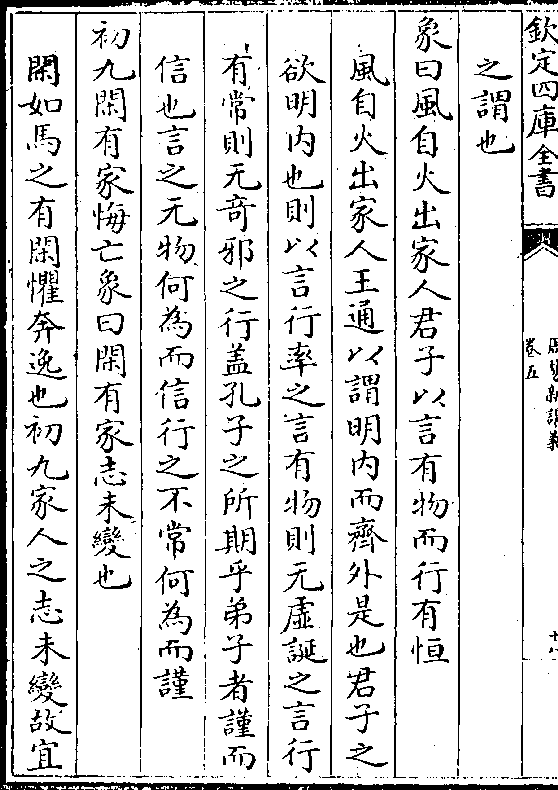 欽定四庫全書
卷五
之謂也
象曰風自火出家人君子以言有物而行有恒
風自火出家人王通以謂明内而齊外是也君子之
欲明内也則以言行率之言有物則无虚誕之言行
有常則无奇邪之行盖孔子之所期乎弟子者謹而
信也言之无物何為而信行之不常何為而謹
初九閑有家悔亡象曰閑有家志未變也
閑如馬之有閑懼奔逸也初九家人之志未變故宜